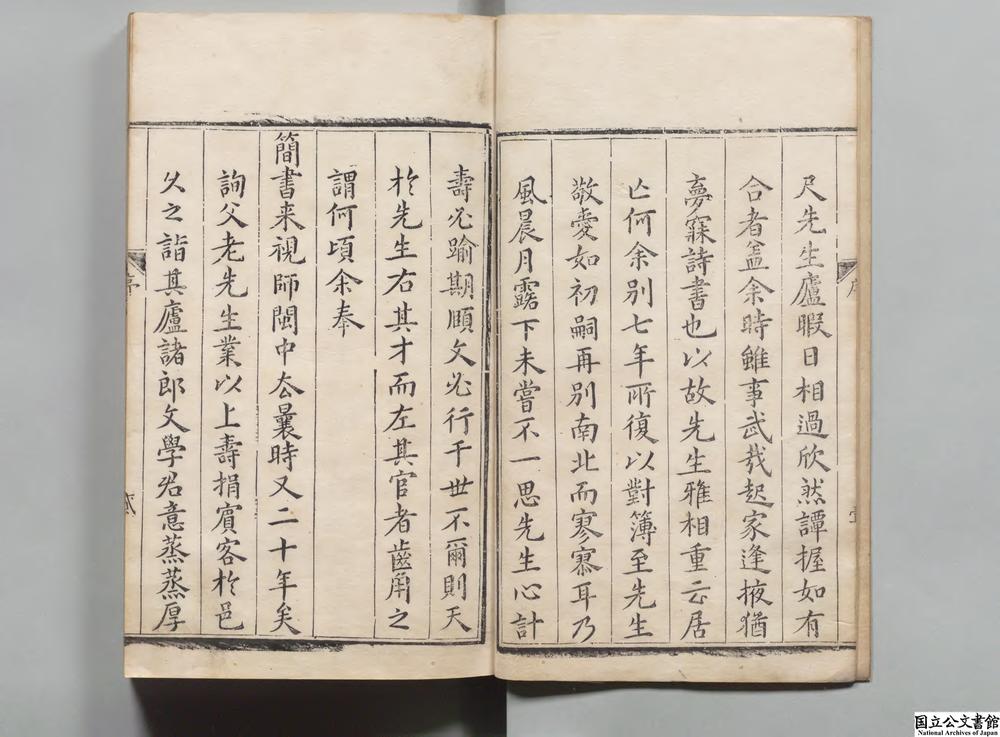 尺先生廬暇日相過欣然譚握如有
合者盖余時雖事武㢤起家逢掖猶
夢寐詩書也以故先生雅相重云居
亡何余别七年所復以對簿至先生
敬愛如初嗣再别南北而寥寥耳乃
風晨月露下未嘗不一思先生心計
壽必踰期頥文必行千世不爾則天
扵先生右其才而左其官者齒角之
謂何頃余奉
簡書来視師閩中去曩時又二十年矣
詢父老先生業以上壽捐賔客扵邑
久之詣其廬諸郎文學君意蒸蒸厚
序
壹
序
貳
国立公文書館
National Archives of Japan